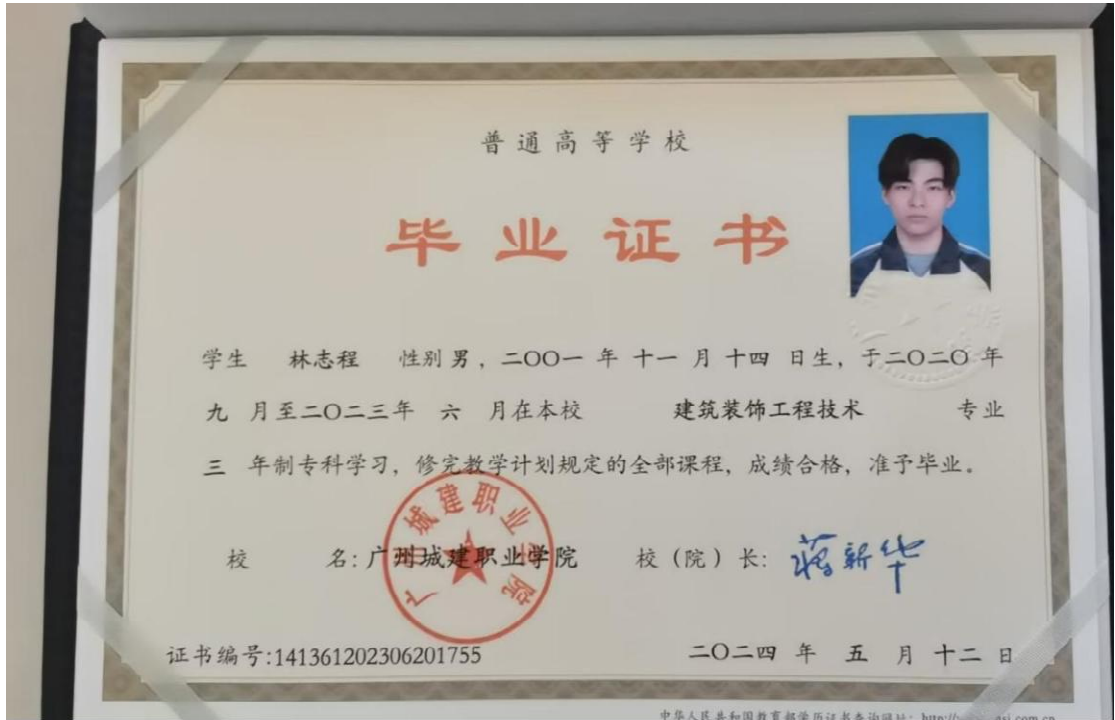 普通高等学校
毕业证书
学生 林志程 性别男，二〇〇一年十一月十四日生，于二〇二〇年
九月至二〇二三年六月在本校 建筑装饰工程技术 专业
三年制专科学习，修完教学计划规定的全部课程，成绩合格，准予毕业。
广州城建职业学院
校 名：广州城建职业学院 校（院）长：蒋新华
证书编号:141361202306201755 二〇二四年五月十二日
中华人民共和国教育部学历证书查询网址：